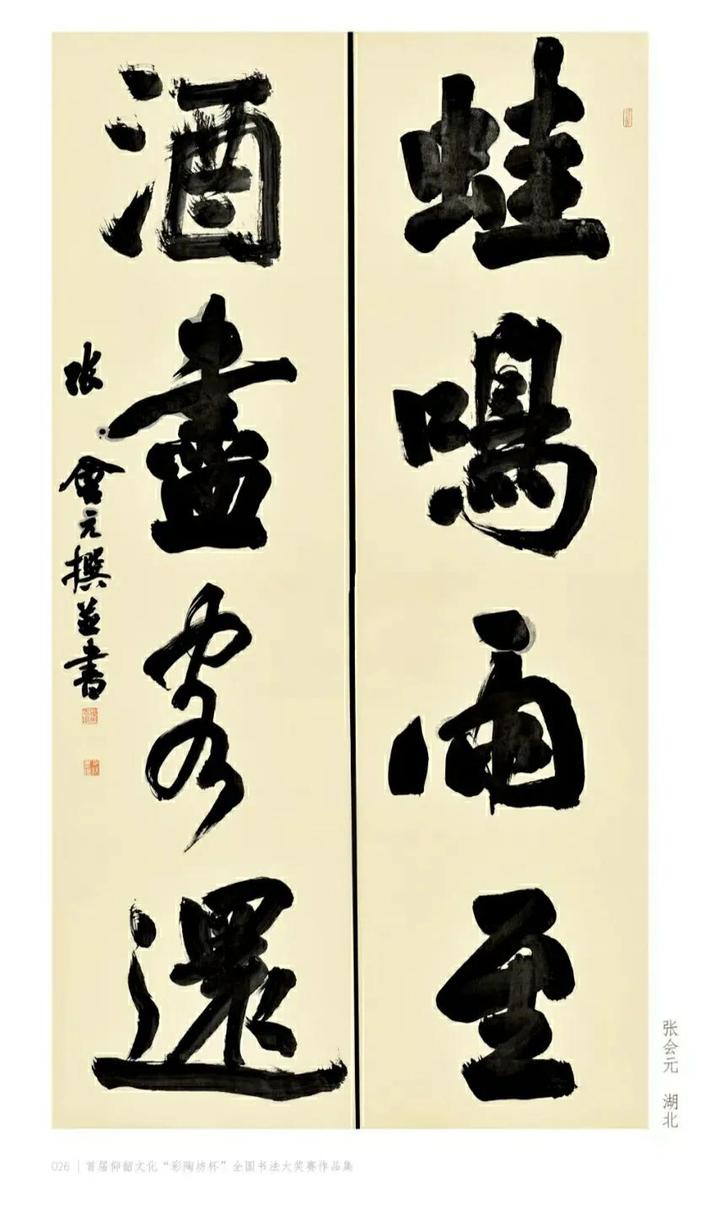 蛙鳴雨至
酒盡客還
張會元撰並書
张会元 湖北
026 | 首届仰韶文化“彩陶坊杯”全国书法大奖赛作品集